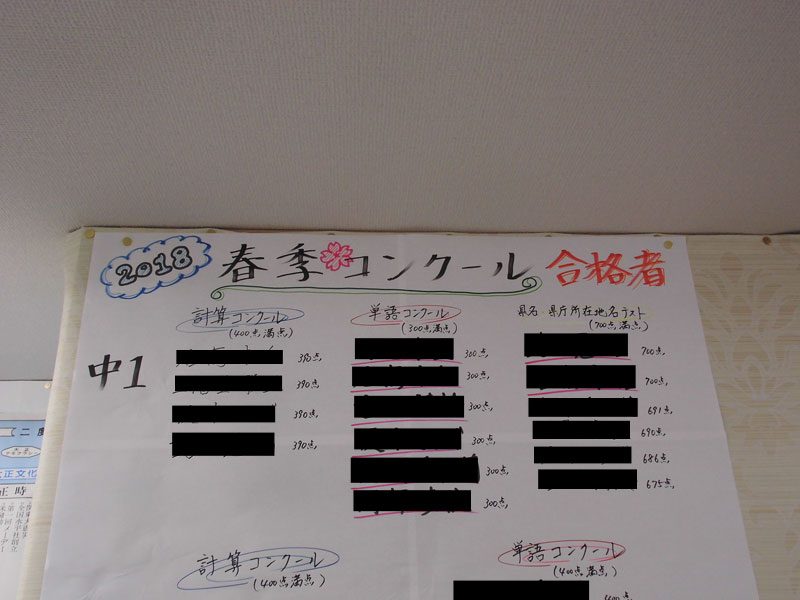 2018 春季コンクール 合格者
中1
計算コンクール
(400点満点)
390点
390点
390点
390点
単語コンクール
(300点満点)
300点
300点
300点
300点
300点
300点
県名 県庁所在地名テスト
(700点満点)
700点
700点
691点
690点
686点
675点
計算コンクール
(400点満点)
単語コンクール
(400点満点)
400点
大正文化